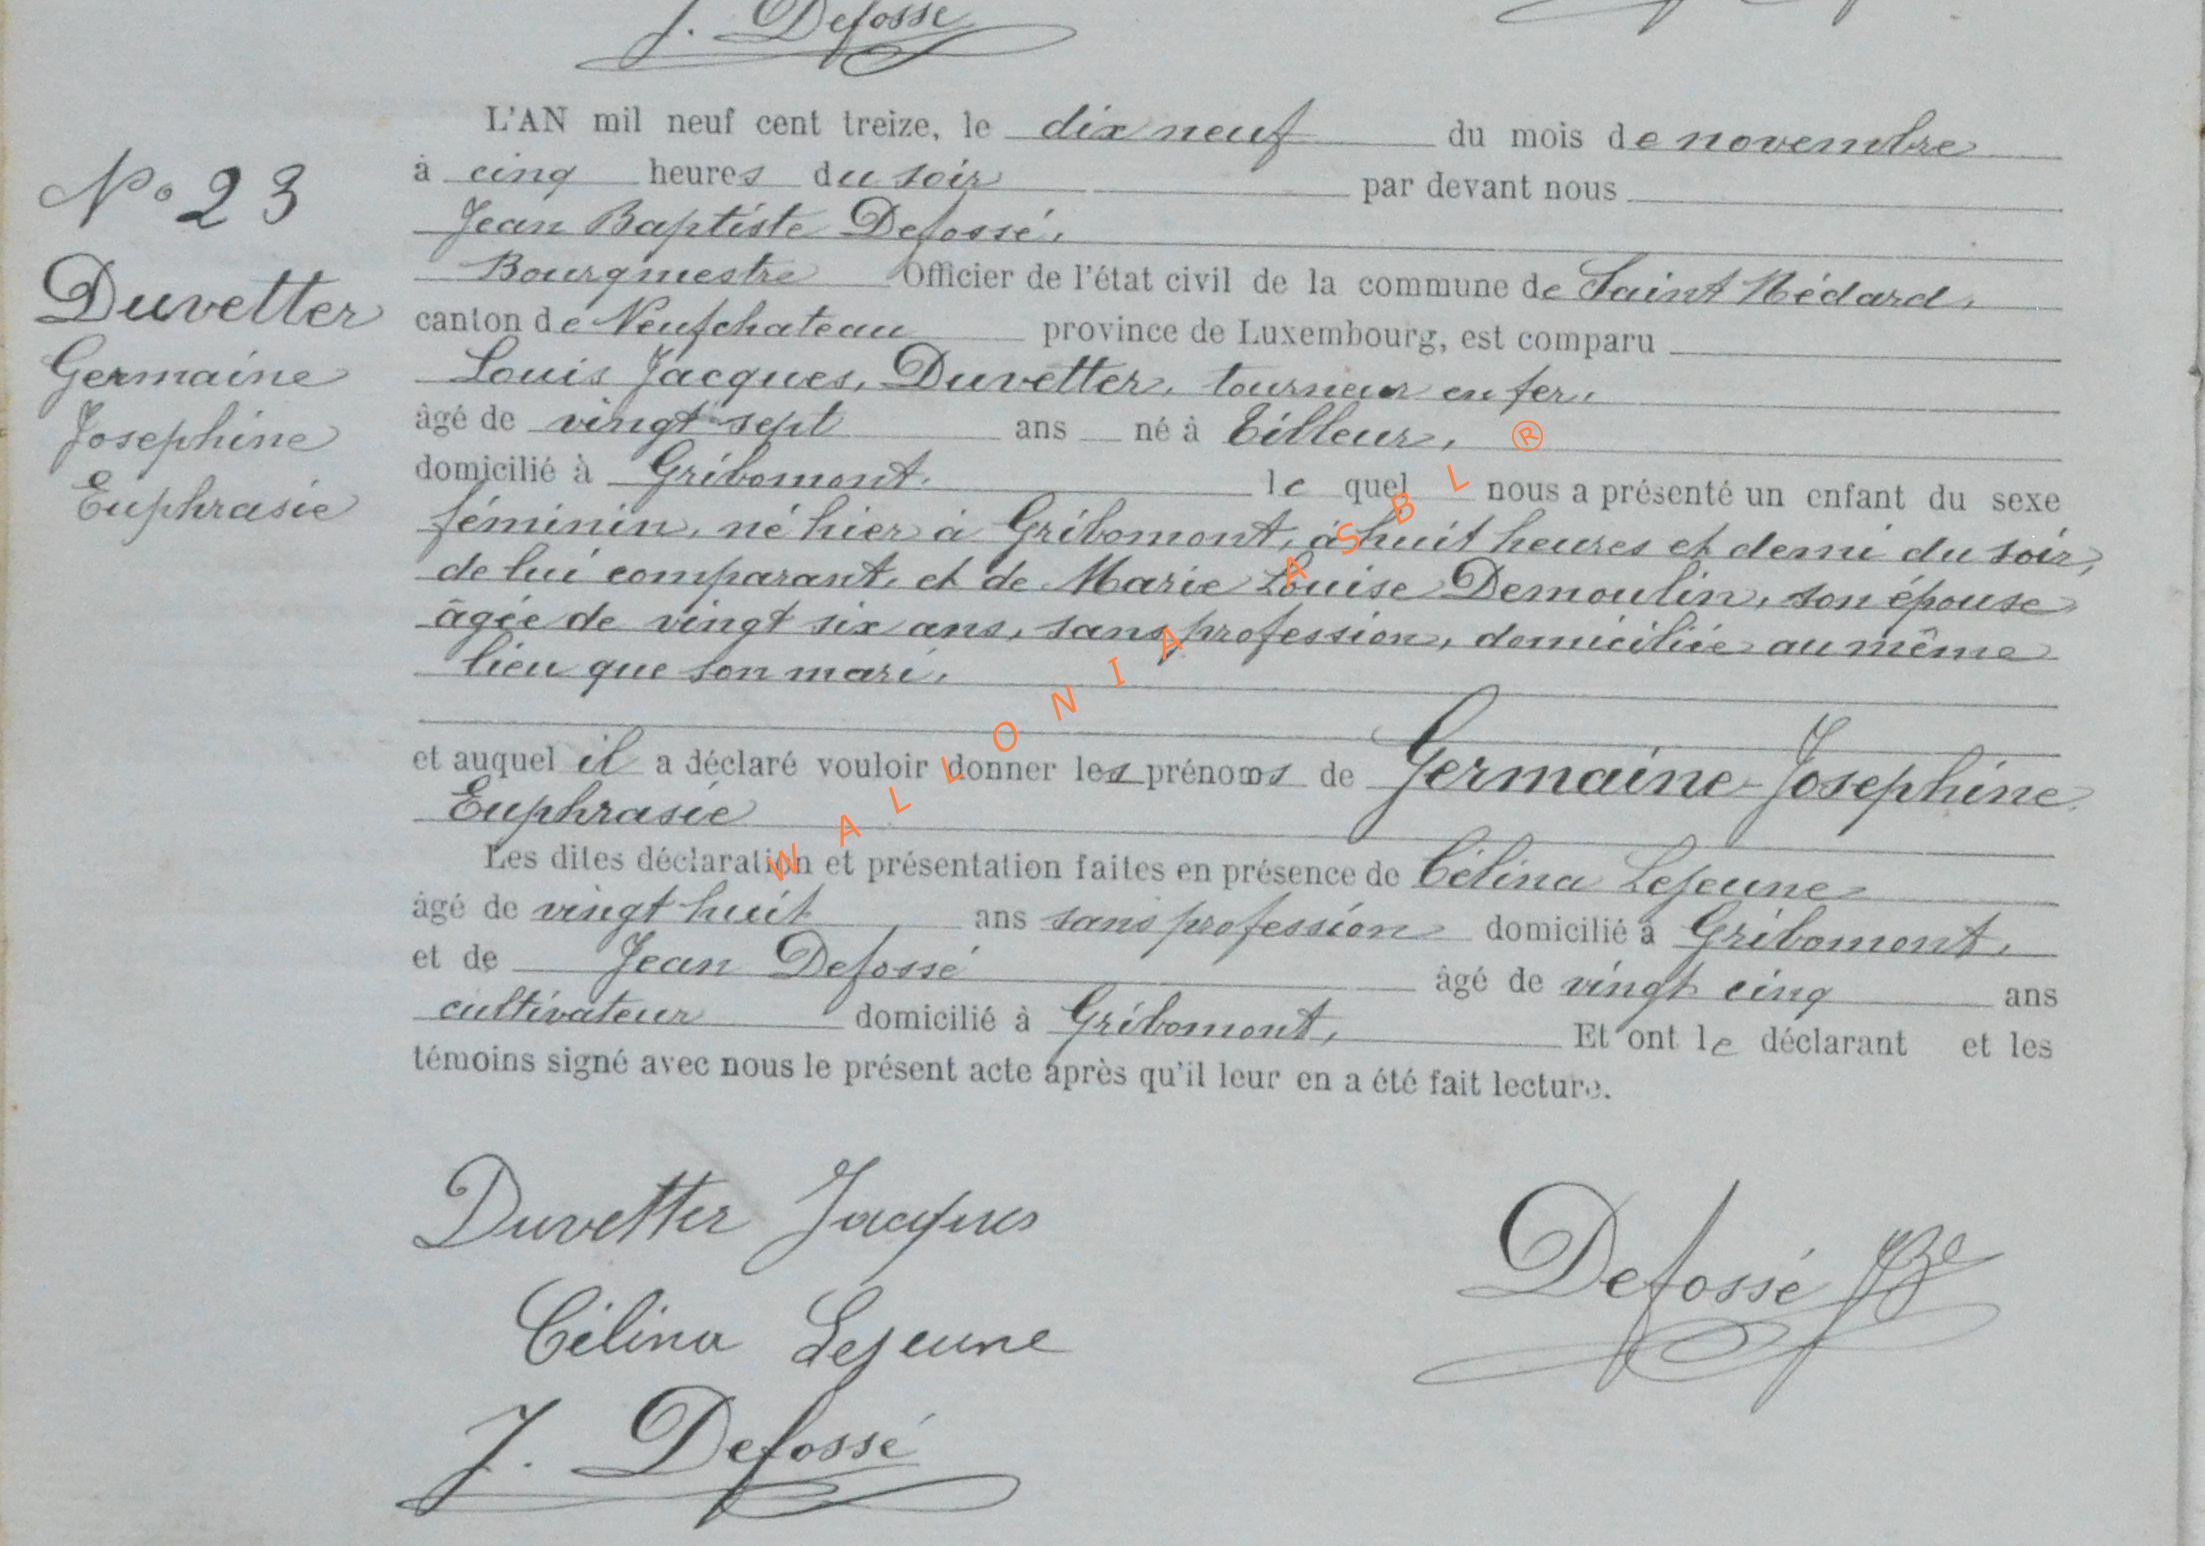 J. Defossé
L'AN mil neuf cent treize, le dix neuf du mois de novembre
à cinq heures du soir par devant nous
Jean Baptiste Defossé,
Bourgmestre Officier de l'état civil de la commune de Saint Médard,
canton de Neufchateau province de Luxembourg, est comparu
Louis Jacques, Duvetter, tourneur en fer,
âgé de vingt sept ans né à Tilleur,
domicilié à Gribomont. le quel nous a présenté un enfant du sexe
féminin, né hier à Gribomont, à huit heures et demi du soir,
de lui comparant, et de Marie Louise Demoulin, son épouse
âgée de vingt six ans, sans profession, domiciliée au même
lieu que son mari.
et auquel il a déclaré vouloir donner les prénoms de Germaine-Josephine
Euphrasie
Les dites déclaration et présentation faites en présence de Célina Lejeune
âgé de vingt huit ans sans profession domicilié à Gribomont,
et de Jean Defossé âgé de vingt cinq ans
cultivateur domicilié à Gribomont, Et ont le déclarant et les
témoins signé avec nous le présent acte après qu'il leur en a été fait lecture.
N° 23
Duvetter
Germaine
Josephine
Euphrasie
Duvetter Jacques
Célina Lejeune
J. Defossé
Defossé JBe
WALLONIA ASBL ®